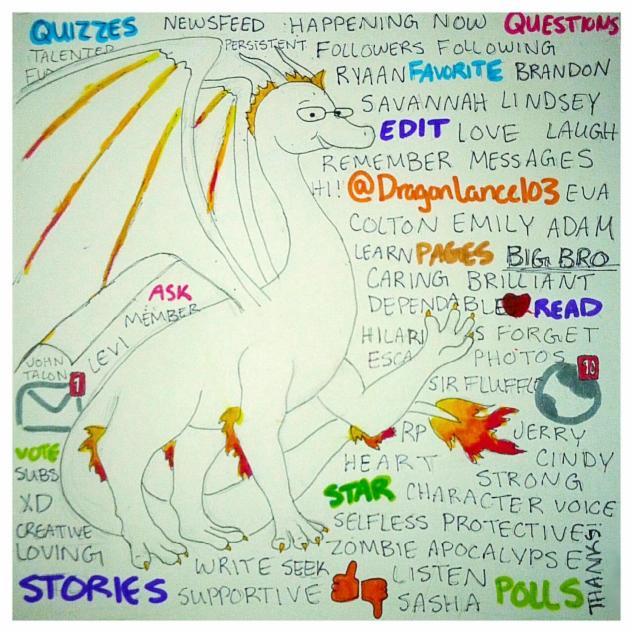 QUIZZES NEWSFEED HAPPENING NOW QUESTIONS
TALENTED PERSISTENT FOLLOWERS FOLLOWING
RYAAN FAVORITE BRANDON
SAVANNAH LINDSEY
EDIT LOVE LAUGH
REMEMBER MESSAGES
HI! @DragonLance103 EVA
COLTON EMILY ADAM
LEARN PAGES BIG BRO
CARING BRILLIANT
ASK DEPENDABLE READ
MEMBER
HILARI S FORGET
LEVI ESCA PHOTOS
JOHN
TALON SIR FLUFFL
1 10
RP JERRY
VOTE HEART CINDY
SUBS STRONG
STAR CHARACTER VOICE
XD SELFLESS PROTECTIVE
CREATIVE ZOMBIE APOCALYPSE
LOVING WRITE SEEK LISTEN
STORIES SUPPORTIVE SASHA POLLS
THANKS!